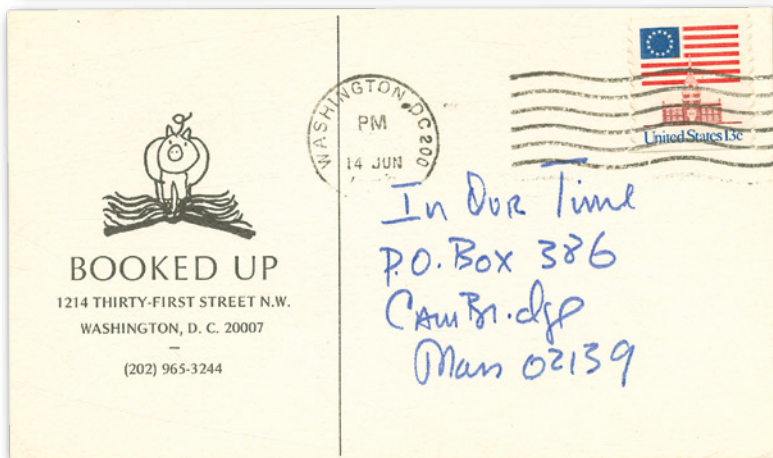 BOOKED UP
1214 THIRTY-FIRST STREET N.W.
WASHINGTON, D. C. 20007
—
(202) 965-3244
WASHINGTON, DC 200
PM
14 JUN
United States 13c
In Our Time
P.O. Box 386
Cambridge
Mass 02139